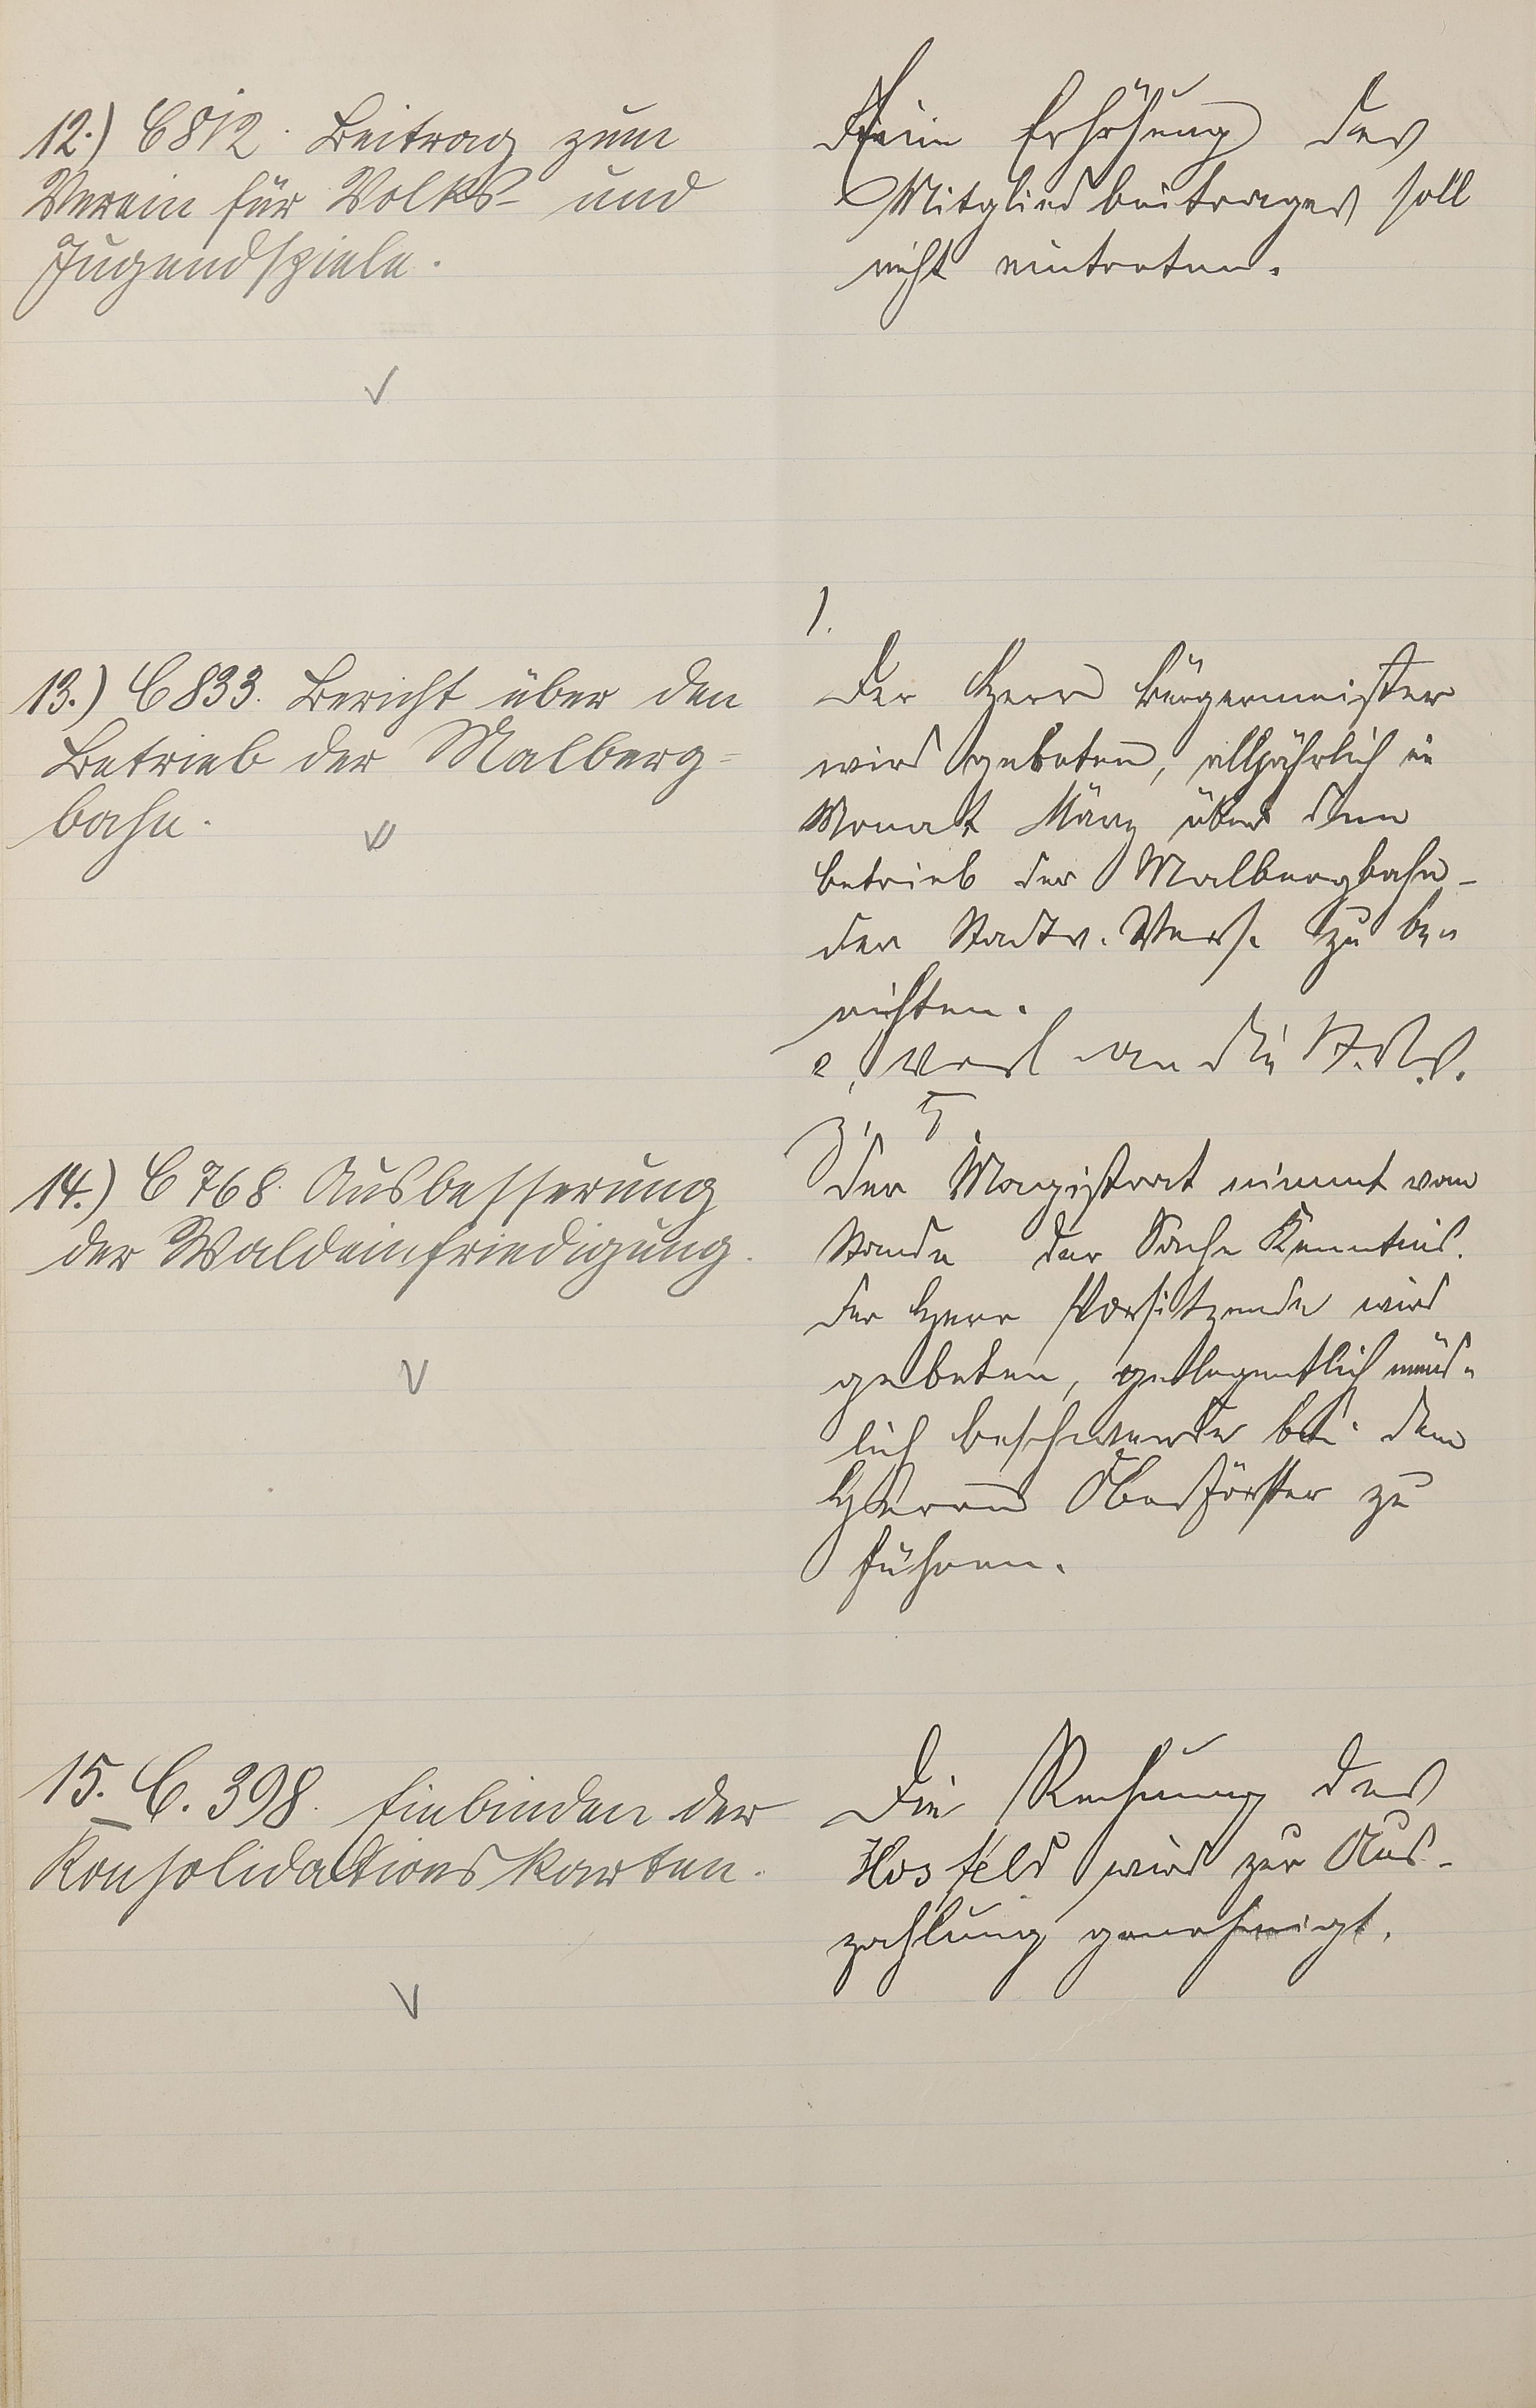 12.) C 812. Beitrag zum
Verein für Volks- und
Jugendspiele.
Eine Erhöhung des
Mitgliedbeitrages soll
nicht eintreten.
13.) C 833. Bericht über den
Betrieb der Malberg=
bahn.
1.
Der Herr Bürgermeister
wird gebeten, alljährlich im
Monat März über den
Betrieb der Malbergbahn
der Stadtv. Vers. zu be„
richten.
2, Vorl an die St. V. V.
3,
14.) C 768. Ausbesserung
der Waldeinfriedigung.
Der Magistrat nimmt vom
Stande der Sache Kenntnis.
Der Herr Vorsitzende wird
gebeten, gelegentlich münd„
lich Beschwerde bei dem
Herrn Oberförster zu
führen.
15. C. 398. Einbinden der
Konsolidationskarten.
Die Rechnung des
Hosfeld wird zur Aus-
zahlung genehmigt.